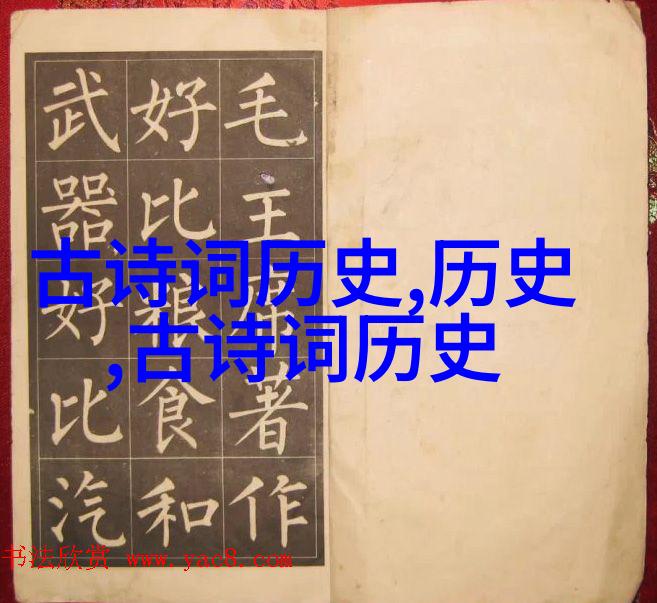 毛主席著作
好比粮食和
武器好比汽
古诗词历史,历史
,古诗词历史
书法欣赏 www.yac8.com